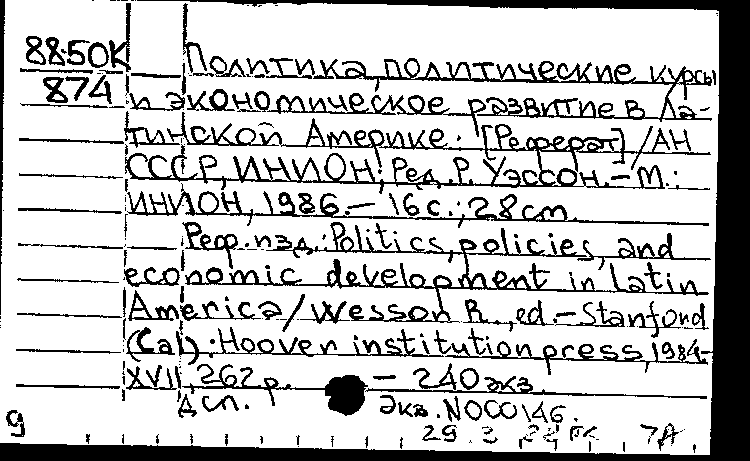 88-50К
874
Политика, политические курсы
и экономическое развитие в Ла-
тинской Америке. [Реферат] / АН
СССР, ИНИОН; Ред. Р. Уэссон. – М.:
ИНИОН, 1986. – 16 с.; 28 cm.
Реф. изд.: Politics, policies, and
economic development in Latin
America / Wesson R., ed. – Stanford
(Cal): Hoover institution press, 1984-
XVII, 262 p. – 240 экз.
Дсп. Экз. N000146.
9 29.3